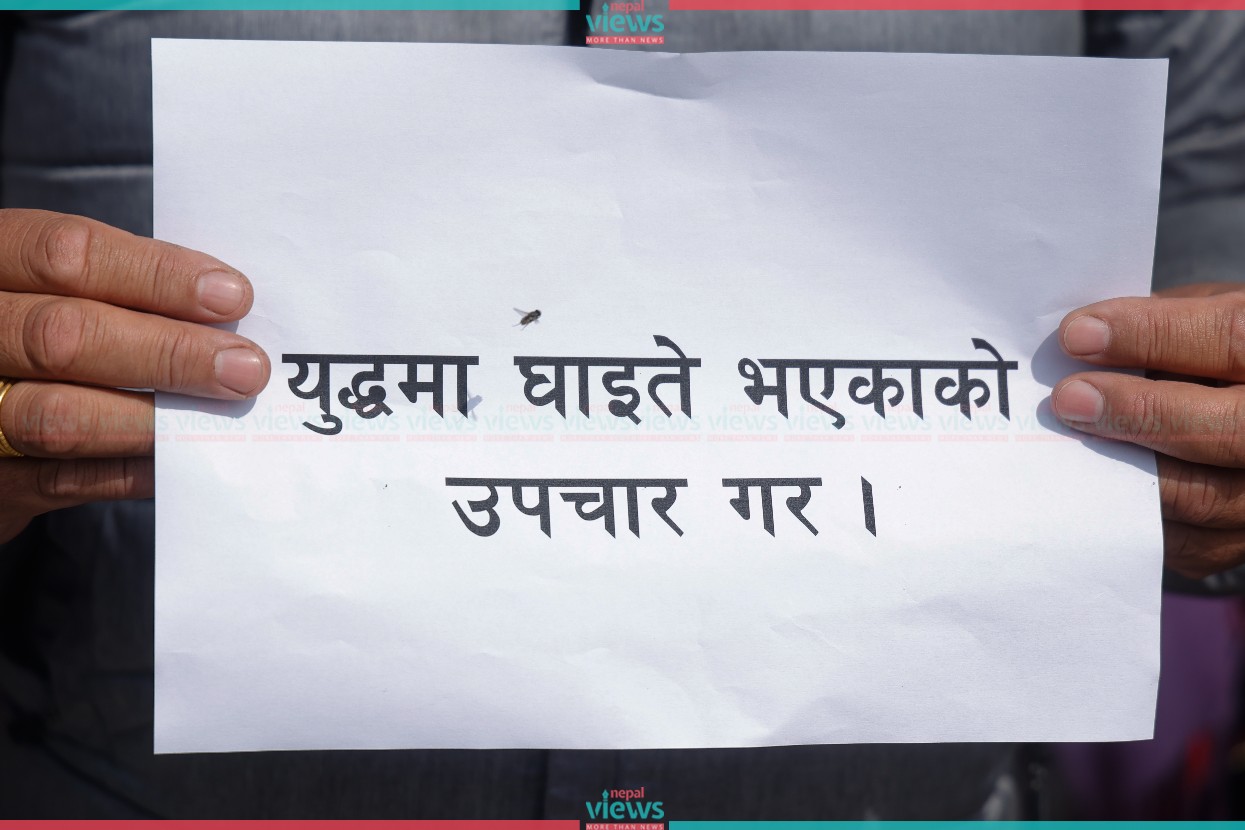 nepal
views
MORE THAN NEWS
युद्धमा घाइते भएकाको
उपचार गर ।
nepal
views
MORE THAN NEWS